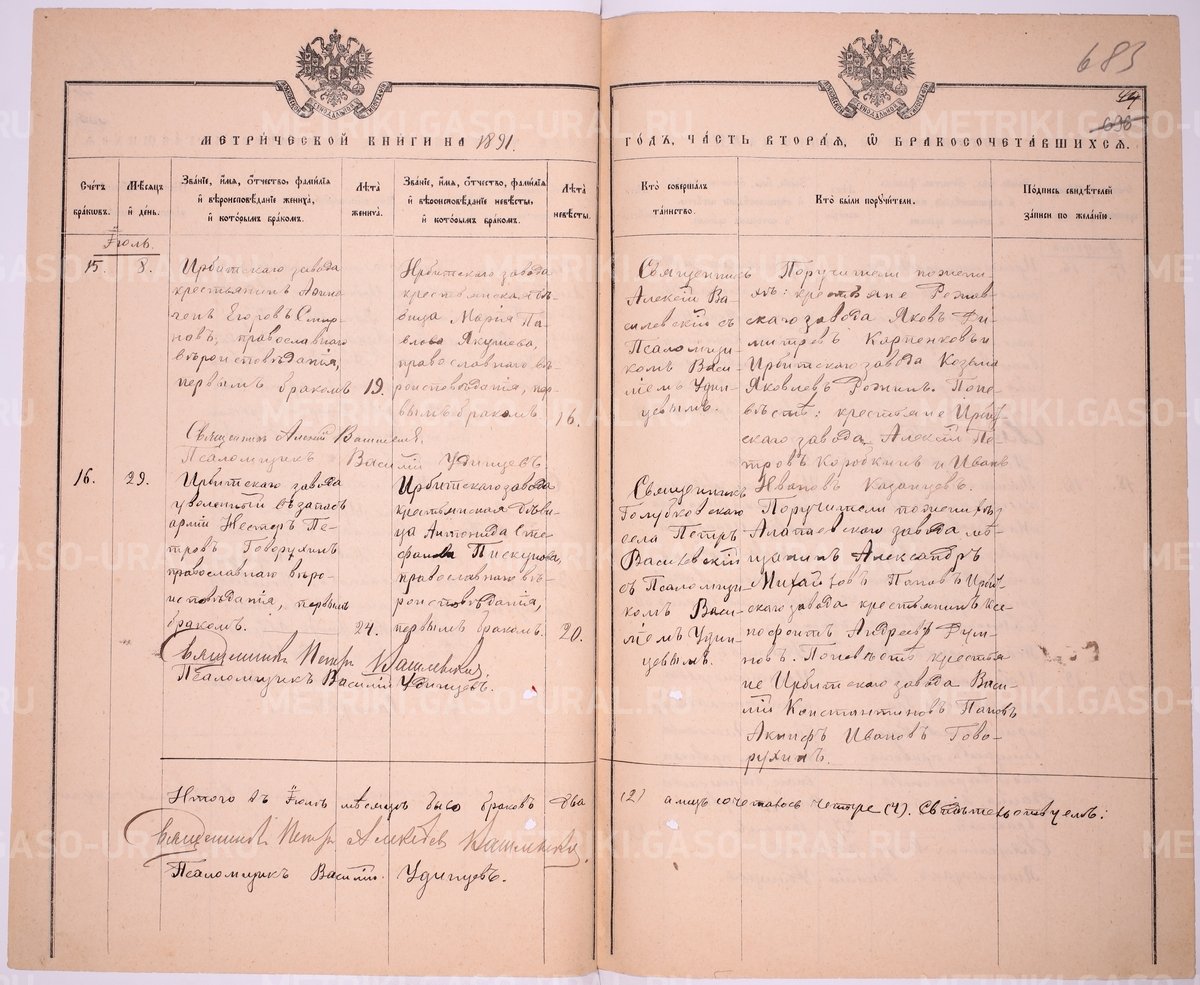 683
44
696
МЕТРИ́ЧЕСКОЙ КНИГИ НА 1891.
ГОДЪ, ЧА́СТЬ ВТОРА́Я, Ѿ БРАКОСОЧЕТА́ВШИХСЯ.
Счетъ браковъ.
Мѣсяцъ и день.
Зва́нїе, и҆́мя, ѻ҆́тчество, фами́лїя и҆ вѣроисповѣ́данїе жениха̀, и҆ кото́рымъ бра́комъ.
Лѣта̀ жениха̀.
Зва́нїе, и҆́мя, ѻ҆́тчество, фами́лїя и҆ вѣроисповѣ́данїе невѣ́сты, и҆ кото́рымъ бра́комъ.
Лѣта̀ невѣ́сты.
Кто̀ соверша́лъ та́инство.
Кто̀ бы́ли порꙋчи́тели.
По́дпись свидѣ́телей за́писи по жела́нїю.
Іюль.
15. 8.
Ирбитскаго завода
крестьянинъ
Егоровъ Смир-
новъ, православнаго
вѣроисповѣданія,
первымъ бракомъ 19.
Ирбитскаго завода
крестьянская дѣ-
вица Марія Па-
влова Якушева,
православнаго вѣ-
роисповѣданія, пер-
вымъ бракомъ. 16.
Священникъ
Алексій Ва-
силевскій съ
Псаломщи-
комъ Васи-
ліемъ Удин-
цевымъ.
Поручители по жени-
хѣ: крестьяне Режев-
скаго завода Яковъ Ди-
митріевъ Карпенковъ и
Ирбитскаго завода Козьма
Яковлевъ Рожинъ. По не-
вѣстѣ: крестьяне Ирбит-
скаго завода Алексій Пе-
тровъ Коробкинъ и Иванъ
Ивановъ Казанцевъ.
Священникъ Алексій Вашлевск
Псаломщикъ Василій Удинцевъ
16. 29.
Ирбитскаго завода
уволенный въ запасъ
арміи Нестеръ Пе-
тровъ Говорухинъ
православнаго вѣро-
исповѣданія, первымъ
бракомъ. 24.
Ирбитскаго завода
крестьянская дѣви-
ца Антонида Сте-
фанова Пискунова
православнаго вѣ-
роисповѣданія,
первымъ бракомъ. 20.
Священникъ
Голубковскаго
села Петръ
Василевскій
съ Псаломщи-
комъ Васи-
ліемъ Удин-
цевымъ.
Поручители по женихѣ:
Алапаевскаго завода мѣ-
щанинъ Александръ
Михайловъ Поповъ Ирбит-
скаго завода крестьянинъ Ксе-
нофонтъ Андреевъ
По невѣстѣ крестья-
не Ирбитскаго завода Васи-
лій Константиновъ Поповъ
Акинфъ Ивановъ Гово-
рухинъ.
Священникъ Петръ Вашлевскій
Псаломщикъ Василій Удинцевъ.
Итого въ Іюль мѣсяцѣ было браковъ два (2) а лицъ сочеталось четыре (4). Свидѣтельствуемъ:
Священникъ Петръ Алексѣевъ Вашлевскій
Псаломщикъ Василій Удинцевъ.
METRIKI.GASO-URAL.RU